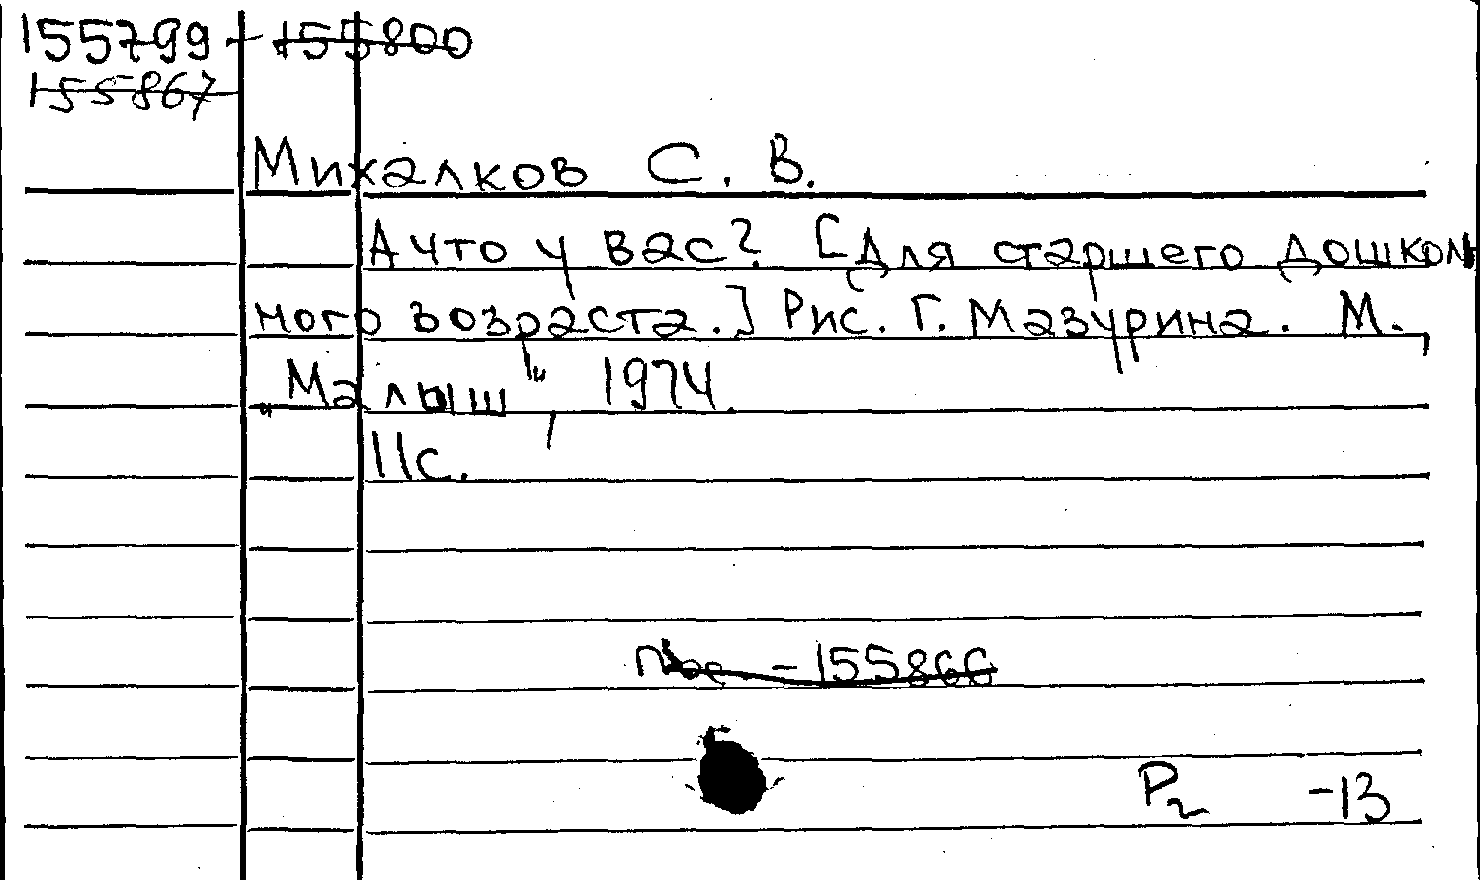 155799 - 155800
155867
Михалков С. В.
А что у вас? [Для старшего дошколь
ного возраста.] Рис. Г. Мазурина. М.,
„Малыш", 1974.
11с.
- 155866
Р2 -13